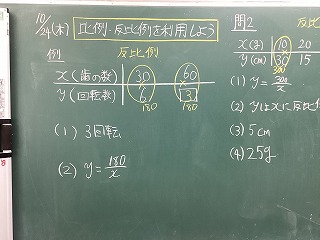 10/24(木) 比例・反比例を利用しよう
例 反比例
x(歯の数) 30 60
y(回転数) 6 3
180 180
(1) 3回転
(2) y=180/x
問2 反比
x(分) 10 20
y(cm) 30 15
300
(1) y=300/x
(2) yはxに反比
(3) 5cm
(4) 25g